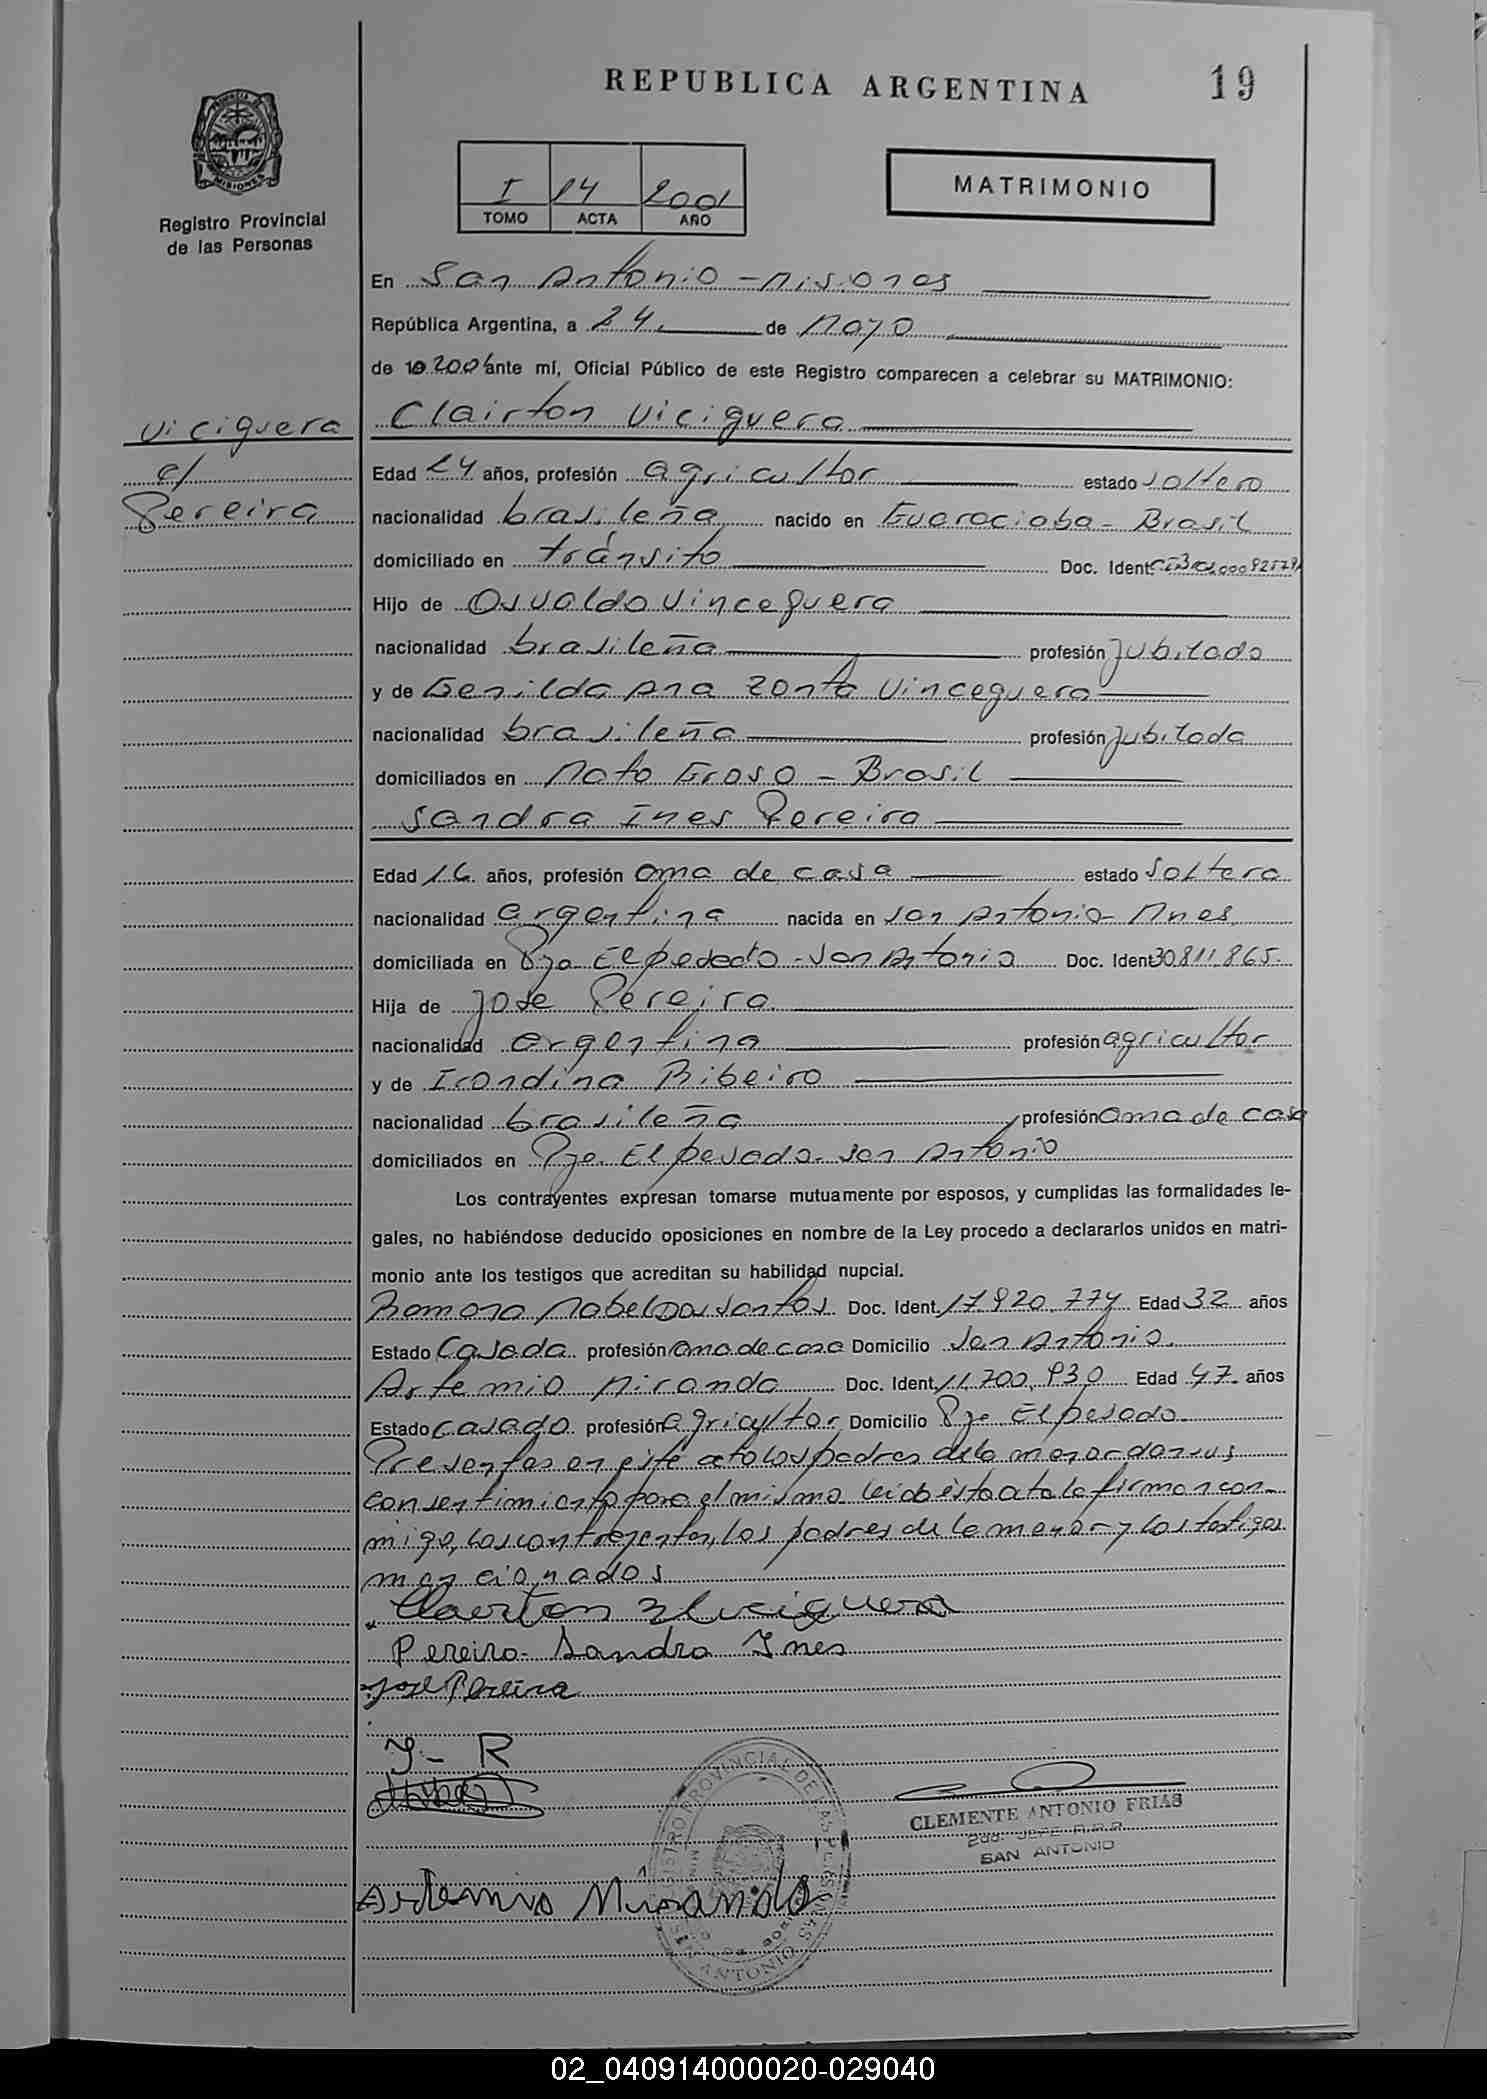 REPUBLICA ARGENTINA
19
PROVINCIA DE
MISIONES
Registro Provincial
de las Personas
I 14 2001
TOMO ACTA AÑO
MATRIMONIO
En San Antonio - Misiones
República Argentina, a 24 de Mayo
de 2001 ante mí, Oficial Público de este Registro comparecen a celebrar su MATRIMONIO:
Viciguera
c/
Pereira
Clairton Viciguera
Edad 24 años, profesión agricultor estado soltero
nacionalidad brasileña nacido en Guarociaba - Brasil
domiciliado en tránsito Doc. Ident.
Hijo de Osvaldo Vinceguera
nacionalidad brasileña profesión jubilado
y de Genilda Ana Zonta Vinceguera
nacionalidad brasileña profesión jubilada
domiciliados en Mato Groso - Brasil
Sandra Ines Pereira
Edad 16 años, profesión ama de casa estado soltera
nacionalidad argentina nacida en San Antonio - Mnes
domiciliada en Pje El pesado - San Antonio Doc. Ident 30.811.865.
Hija de Jose Pereira
nacionalidad argentina profesión agricultor
y de Irondina Ribeiro
nacionalidad brasileña profesión ama de casa
domiciliados en Pje. El pesado. San Antonio
Los contrayentes expresan tomarse mutuamente por esposos, y cumplidas las formalidades le-
gales, no habiéndose deducido oposiciones en nombre de la Ley procedo a declararlos unidos en matri-
monio ante los testigos que acreditan su habilidad nupcial.
Ramona Mabel Dos Santos Doc. Ident. 17.920.774 Edad 32 años
Estado Casada profesión ama de casa Domicilio San Antonio.
Artemio Miranda Doc. Ident. 11.700.930 Edad 47 años
Estado casado profesión agricultor Domicilio Pje El pesado.
Presentes en este acto los padres de la menor dan sus
consentimiento para el mismo leida esta acta la firman con-
migo, los contrayentes, los padres de la menor y los testigos
mencionados
Clairton Viciguera
Pereira Sandra Ines
Jose Pereira
I - R
REGISTRO PROVINCIAL DE LAS PERSONAS
SAN ANTONIO
CLEMENTE ANTONIO FRIAS
2do. JEFE R.R.P.
SAN ANTONIO
Artemio Miranda
02_040914000020-029040